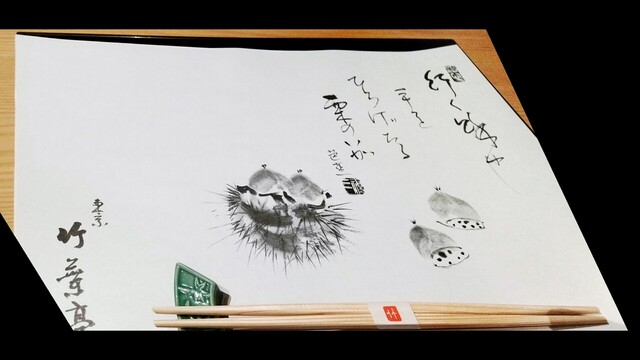 行く秋や
手を
ひろげたる
栗のいが
芭蕉
東京
竹葉亭
竹